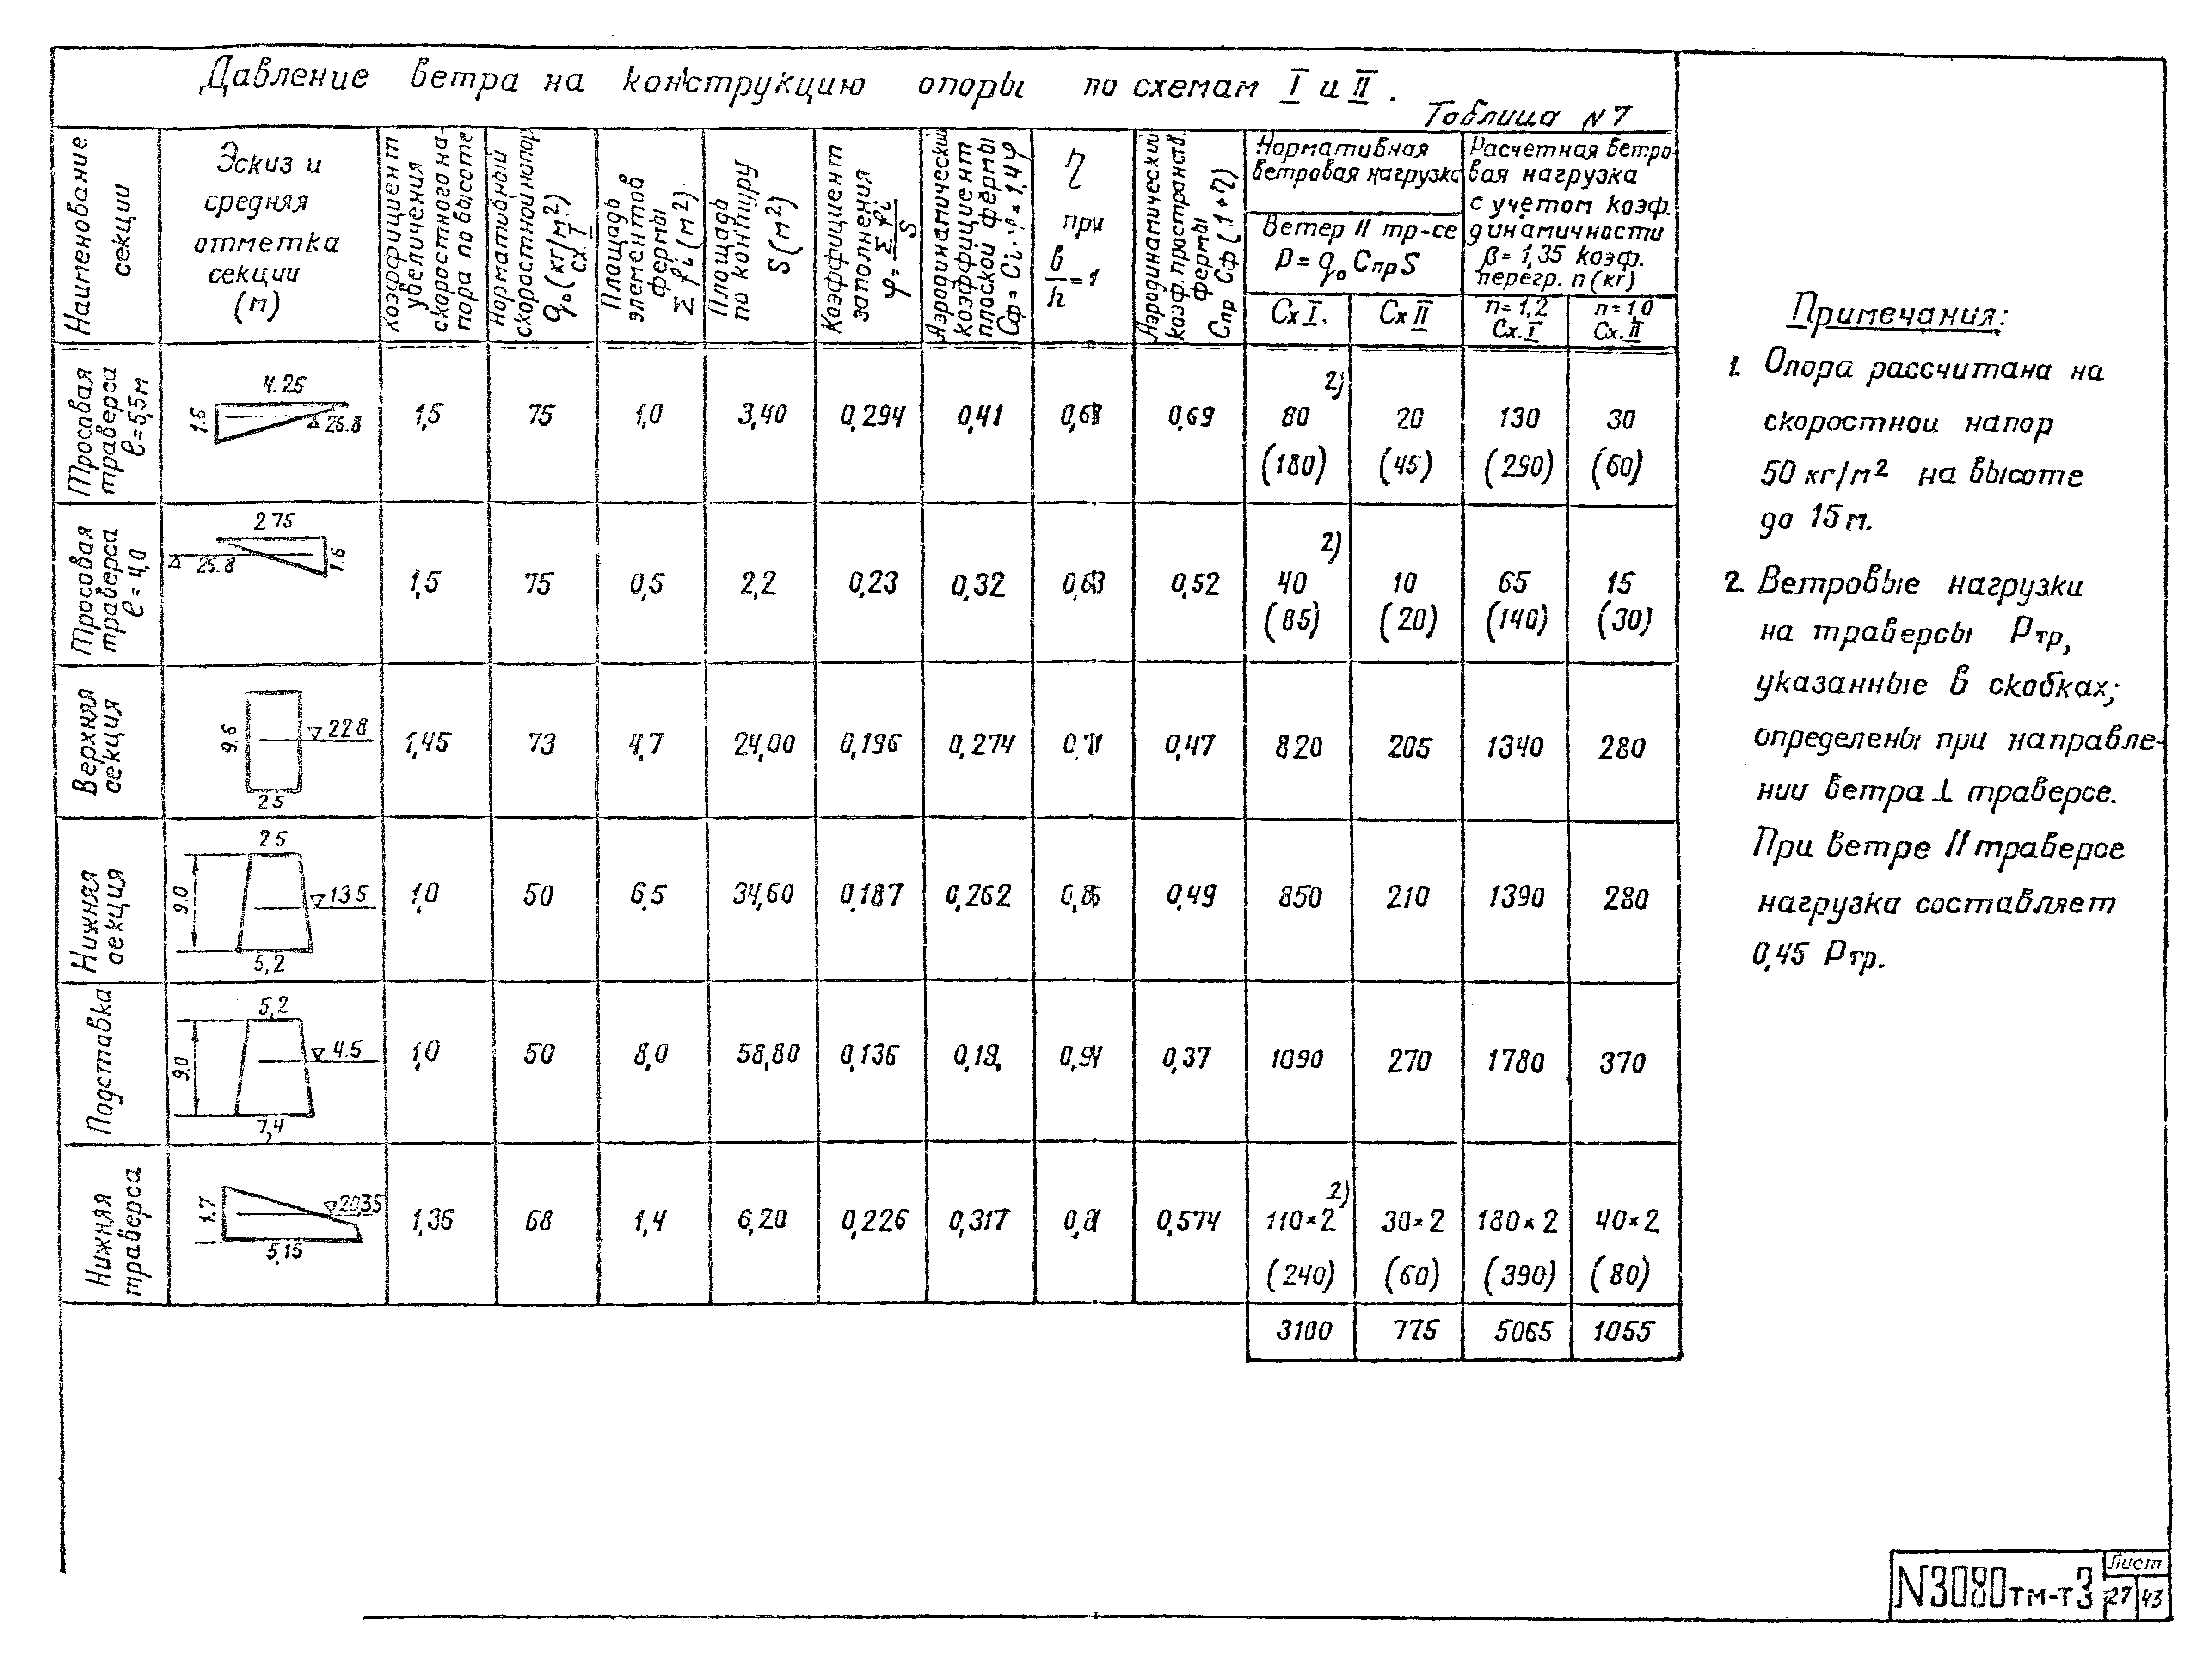 Давление ветра на конструкцию опоры по схемам I и II.
Таблица N 7
Наименование секции
Эскиз и
средняя
отметка
секции
(м)
Коэффициент
увеличения
скоростного на-
пора по высоте
Нормативный
скоростной напор
q₀ (кг/м²)
сх. I
Площадь
элементов
фермы
Σ fi (м²)
Площадь
по контуру
S (м²)
Коэффициент
заполнения
φ = Σ fi / S
Аэродинамический
коэффициент
плоской фермы
Cф = Ci·φ = 1,4φ
η
при
b/h = 1
Аэродинамический
коэф. пространств.
фермы
Cпр Cф (1+η)
Нормативная
ветровая нагрузка
Ветер II тр-се
P = q₀ Cпр S
Сх I.
Сх II
Расчетная ветро
вая нагрузка
с учетом коэф.
динамичности
β = 1,35 коэф.
перегр. n (кг)
n = 1,2
Сх. I
n = 1,0
Сх. II
Тросовая
траверса
ℓ = 5,5 м
4.25
1.6
25.8
1,5 75 1,0 3,40 0,294 0,41 0,69
2)
80 20 130 30
(180) (45) (290) (60)
Тросовая
траверса
ℓ = 4,0
2 75
25.8
1.6
1,5 75 0,5 2,2 0,23 0,32 0,52
2)
40 10 65 15
(85) (20) (140) (30)
Верхняя
секция
9.6
22 8
2 5
1,45 73 4,7 24,00 0,196 0,274 0,71 0,47 820 205 1340 280
Нижняя
секция
2 5
9.0
13 5
5,2
1,0 50 6,5 34,60 0,187 0,262 0,85 0,49 850 210 1390 280
Подставка
5,2
9.0
4.5
7,4
1,0 50 8,0 58,80 0,136 0,19 0,91 0,37 1090 270 1780 370
Нижняя
траверса
1.7
20,35
5,15
1,36 68 1,4 6,20 0,226 0,317 0,81 0,574
2)
110×2 30×2 180×2 40×2
(240) (60) (390) (80)
3100 775 5065 1055
Примечания:
1. Опора рассчитана на
скоростной напор
50 кг/м² на высоте
до 15 м.
2 Ветровые нагрузки
на траверсы Ртр,
указанные в скобках,
определены при направле-
нии ветра ⊥ траверсе.
При ветре II траверсе
нагрузка составляет
0,45 Ртр.
N3080тм-т3
Лист
27 43